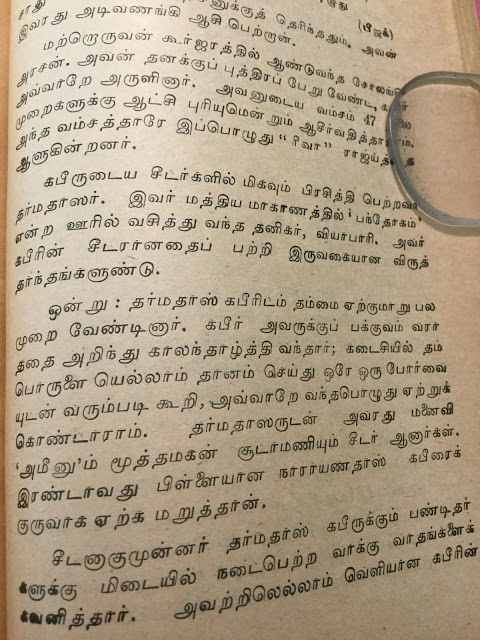 சாது னுக்குத் தெரிந்ததும், அவன் (பீஜக்)
இவரது அடிவணங்கி ஆசி பெற்றான்.
மற்றொருவன் கூர்ஜரத்தில் ஆண்டுவந்த சோலங்கி
அரசன். அவன் தனக்குப் புத்திரப் பேறு வேண்ட, கபீர்
அவ்வாறே அருளினார். அவனுடைய வம்சம் 47
முறைகளுக்கு ஆட்சி புரியுமென்றும் ஆசீர்வதித்தாராம்.
அந்த வம்சத்தாரே இப்பொழுது "ரீவா" ராஜ்யத்தை
ஆளுகின்றனர்.
கபீருடைய சீடர்களில் மிகவும் பிரசித்தி பெற்றவர்
தர்மதாஸர். இவர் மத்திய மாகாணத்தில் 'பந்தோகம்'
என்ற ஊரில் வசித்து வந்த தனிகர், வியாபாரி. அவர்
கபீரின் சீடரானதைப் பற்றி இருவகையான விருத்
தாந்தங்களுண்டு.
ஒன்று : தர்மதாஸ் கபீரிடம் தம்மை ஏற்குமாறு பல
முறை வேண்டினார். கபீர் அவருக்குப் பக்குவம் வரா
ததை அறிந்து காலந்தாழ்த்தி வந்தார்; கடைசியில் தம்
பொருளை யெல்லாம் தானம் செய்து ஒரே ஒரு போர்வை
யுடன் வரும்படி கூறி, அவ்வாறே வந்தபொழுது ஏற்றுக்
கொண்டாராம். தர்மதாஸருடன் அவரது மனைவி
'அமீனு'ம் மூத்தமகன் சூடாமணியும் சீடர் ஆனார்கள்.
இரண்டாவது பிள்ளையான நாராயணதாஸ் கபீரைக்
குருவாக ஏற்க மறுத்தான்.
சீடனாகுமுன்னர் தர்மதாஸ் கபீருக்கும் பண்டிதர்
களுக்கு மிடையில் நடைபெற்ற வாக்கு வாதங்களைக்
கவனித்தார். அவற்றிலெல்லாம் வெளியான கபீரின்